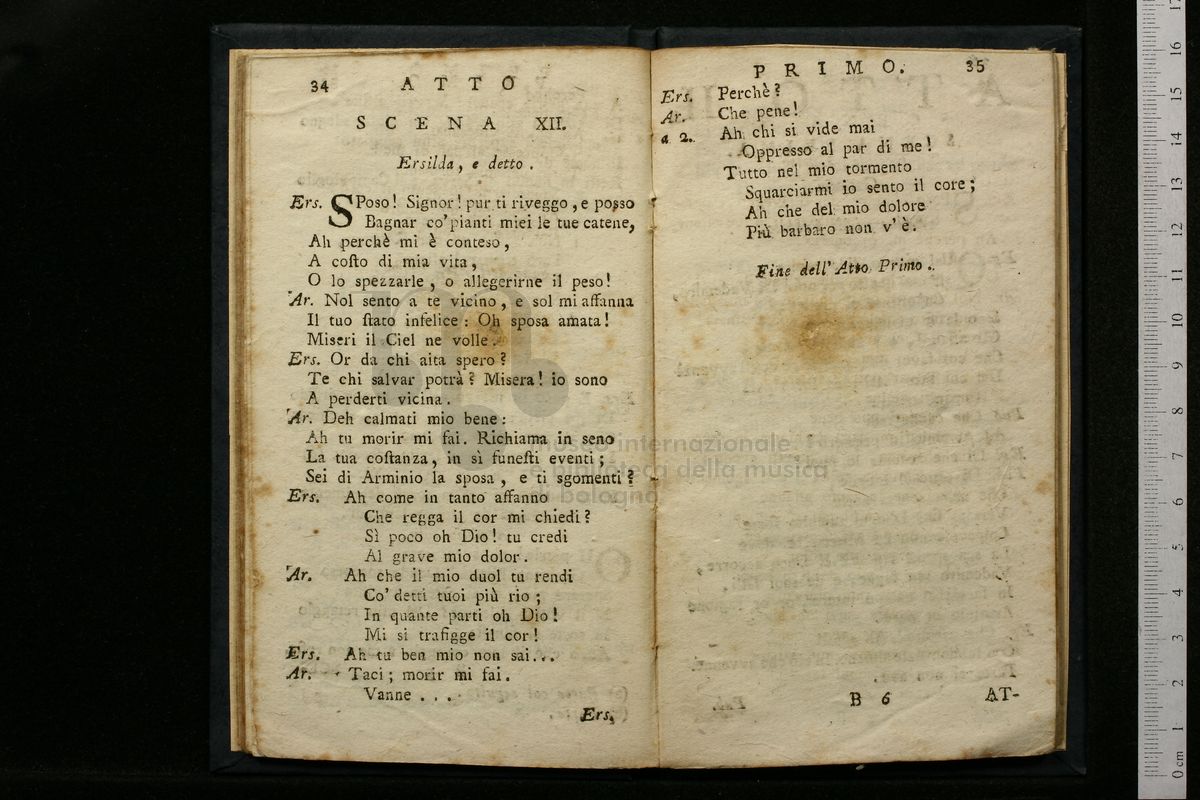 34 ATTO
SCENA XII.
Ersilda, e detto.
Ers. SPoso! Signor! pur ti riveggo, e posso
Bagnar co' pianti miei le tue catene,
Ah perchè mi è conteso,
A coſto di mia vita,
O lo spezzarle, o allegerirne il peso!
Ar. Nol sento a te vicino, e sol mi affanna
Il tuo ſtato infelice: Oh sposa amata!
Miseri il Ciel ne volle.
Ers. Or da chi aita spero?
Te chi salvar potrà? Misera! io sono
A perderti vicina.
Ar. Deh calmati mio bene:
Ah tu morir mi fai. Richiama in seno
La tua coſtanza, in sì funeſti eventi;
Sei di Arminio la sposa, e ti sgomenti?
Ers. Ah come in tanto affanno
Che regga il cor mi chiedi?
Sì poco oh Dio! tu credi
Al grave mio dolor.
Ar. Ah che il mio duol tu rendi
Co' detti tuoi più rio;
In quante parti oh Dio!
Mi si trafigge il cor!
Ers. Ah tu ben mio non sai...
Ar. Taci; morir mi fai.
Vanne....
Ers.
PRIMO. 35
Ers. Perchè?
Ar. Che pene!
a 2. Ah chi si vide mai
Oppresso al par di me!
Tutto nel mio tormento
Squarciarmi io sento il core;
Ah che del mio dolore
Più barbaro non v'è.
Fine dell' Atto Primo.
B 6 AT-
museo internazionale
e biblioteca della musica
di bologna
0 cm 1 2 3 4 5 6 7 8 9 10 11 12 13 14 15 16 17